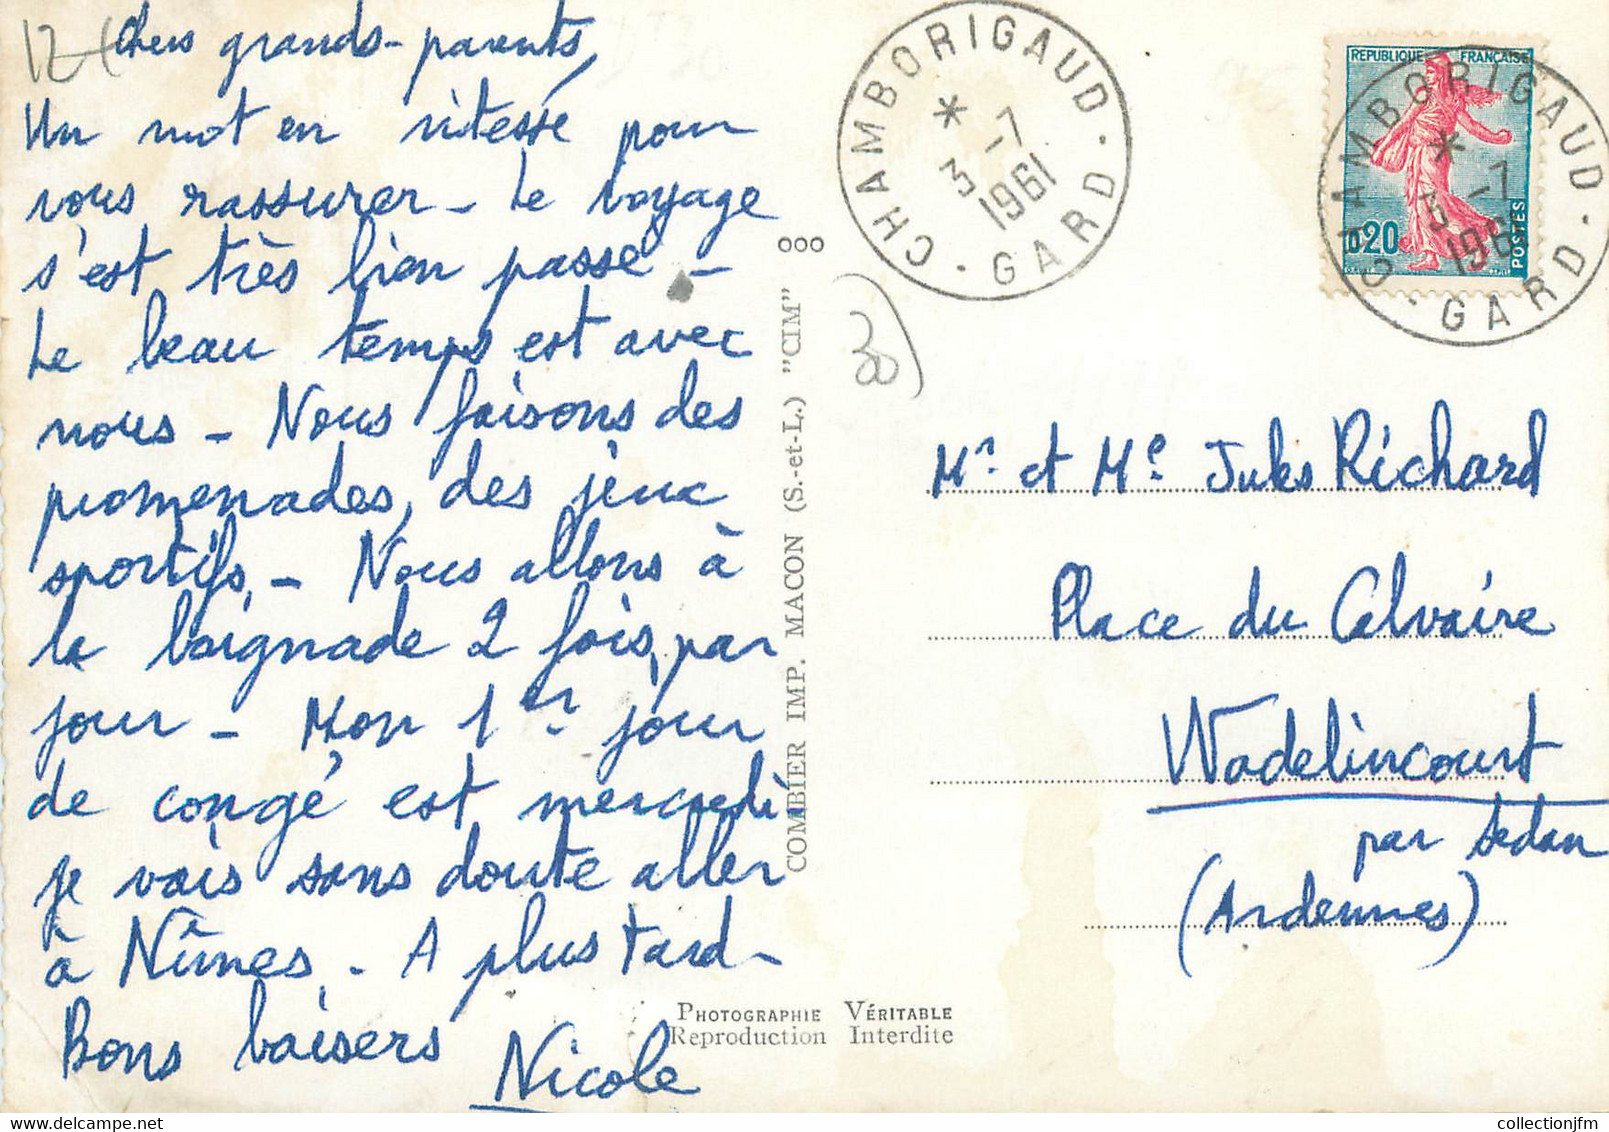 Chers grands-parents,
Un mot en vitesse pour
vous rassurer - Le voyage
s'est très bien passé -
Le beau temps est avec
nous - Nous faisons des
promenades, des jeux
sportifs, - Nous allons à
la baignade 2 fois, par
jour - Mon 1er jour
de congé est mercredi
je vais sans doute aller
à Nîmes, - A plus tard -
Bons baisers
Nicole
COMBIER IMP. MACON (S.-et-L.) "CIM"
PHOTOGRAPHIE VÉRITABLE
Reproduction Interdite
CHAMBORIGAUD
* 3 -7
1961
GARD
REPUBLIQUE FRANÇAISE
0,20
POSTES
CHAMBORIGAUD
* 3 -7
1961
GARD
Mr et Me Jules Richard
Place du Calvaire
Wadelincourt
par Sedan
(Ardennes)
collectionjfm